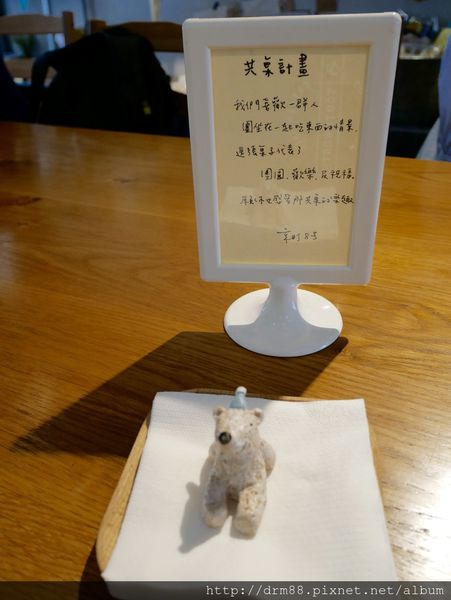 共桌計畫
我們喜歡一群人
圍坐在一起吃東西的情景
這張桌子代表了
團圓、歡樂、及祝福
你也習慣所共享的樂趣
幸町8号
http://drm88.pixnet.net/album